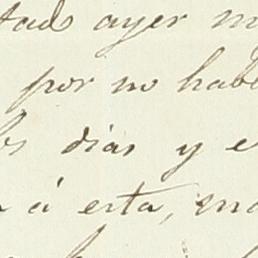 tad ayer
por no hab
dias y e
á esta,